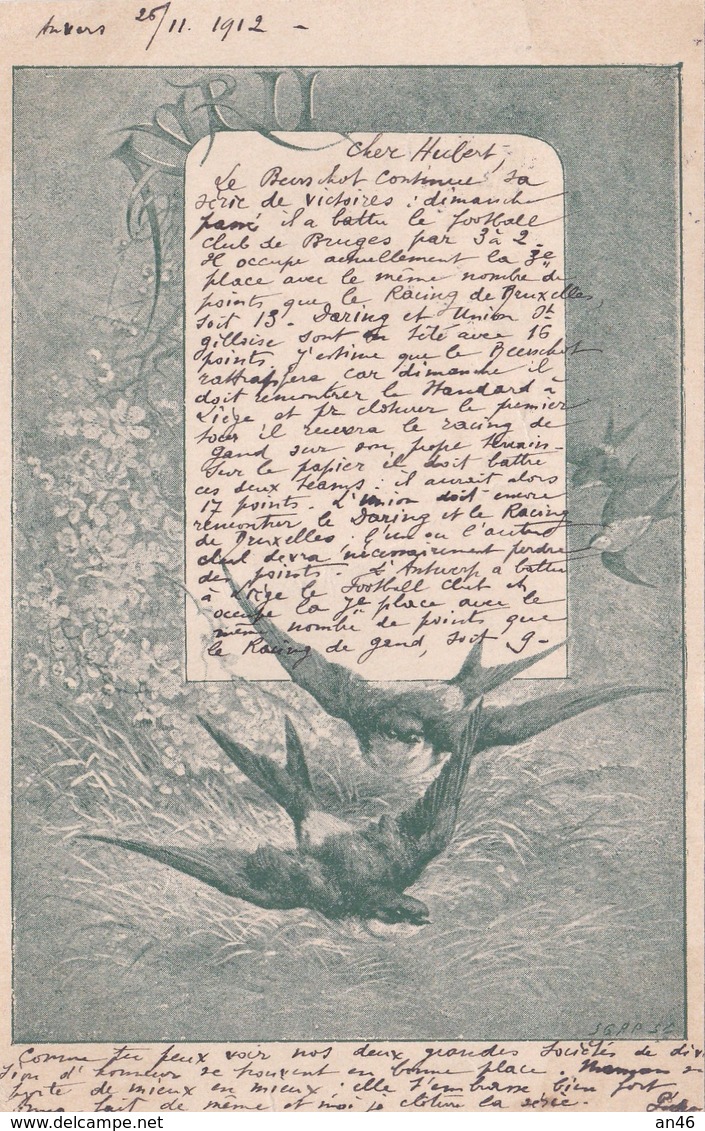 Anvers 26/11. 1912 -
AVRIL
Cher Hubert,
Le Beerschot continue sa
série de victoires : dimanche
passé il a battu le football
club de Bruges par 3 à 2.
Il occupe actuellement la 3e
place avec le même nombre de
points que le Racing de Bruxelles,
soit 13 - Daring et Union St
gilloise sont en tête avec 16
points. J'estime que le Beerschot
rattrapera car dimanche il
doit rencontrer le Standard à
Liège et pr cloturer le premier
tour il recevra le racing de
gand sur son propre terrain -
Sur le papier il doit battre
ces deux teams : il aurait alors
17 points. L'Union doit encore
rencontrer le Daring et le Racing
de Bruxelles. L'un ou l'autre
club devra nécessairement perdre
des points. L'Antwerp a battu
à Liège le Football club et
occupe la 7e place avec le
même nombre de points que
le Racing de gand, soit 9 -
Comme tu peux voir nos deux grandes sociétés de divi
sion d'honneur se trouvent en bonne place. Maman se
porte de mieux en mieux : elle t'embrasse bien fort
fait de même et moi je cloture la série.
an46